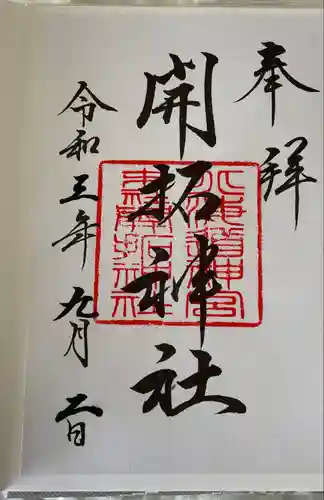 奉拝
開拓神社
北海道神宮
末社開拓神社
令和三年九月二日